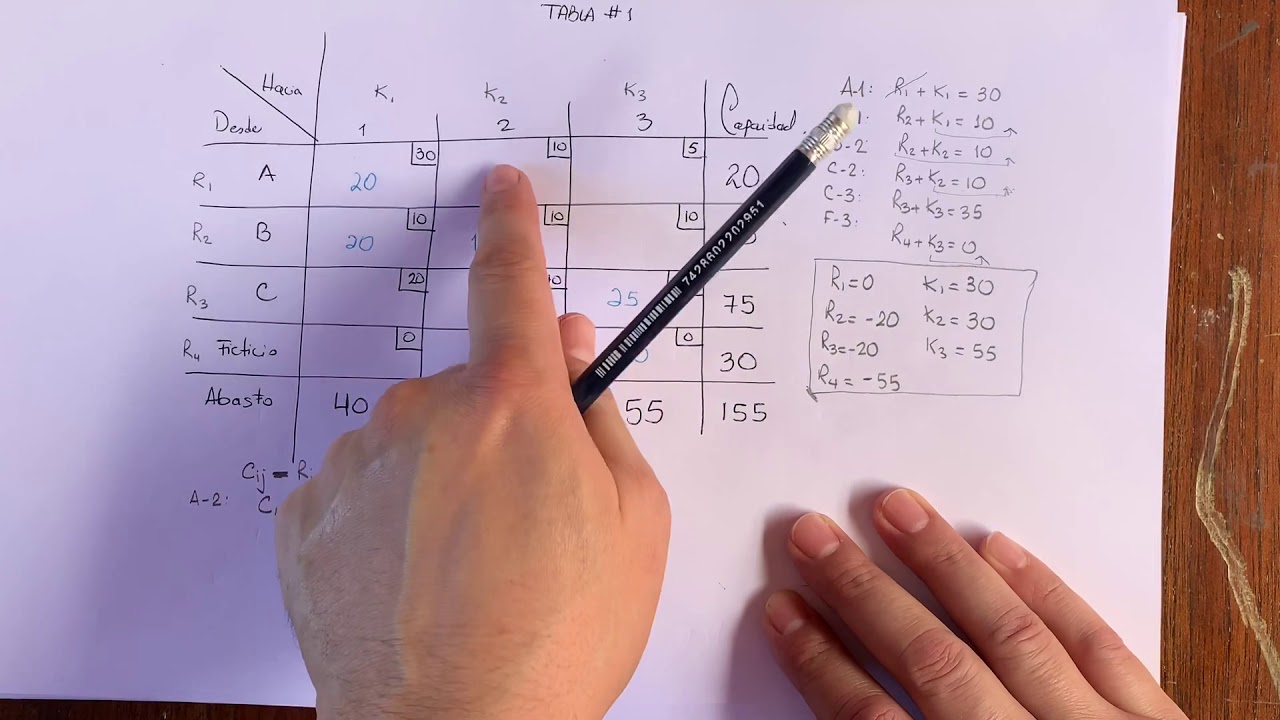 TABLA #1
Hacia K₁ K₂ K₃
Desde 1 2 3 Capacidad
R₁ A 30 20 10 5 20
R₂ B 10 20 10 10
R₃ C 20 25 75
R₄ Ficticio 0 0 30
Abasto 40 55 155
Cij = R
A-2: C
A-1: R₁ + K₁ = 30
R₂ + K₁ = 10
-2: R₂ + K₂ = 10
C-2: R₃ + K₂ = 10
C-3: R₃ + K₃ = 35
F-3: R₄ + K₃ = 0
R₁ = 0 K₁ = 30
R₂ = -20 K₂ = 30
R₃ = -20 K₃ = 55
R₄ = -55
7428602202951